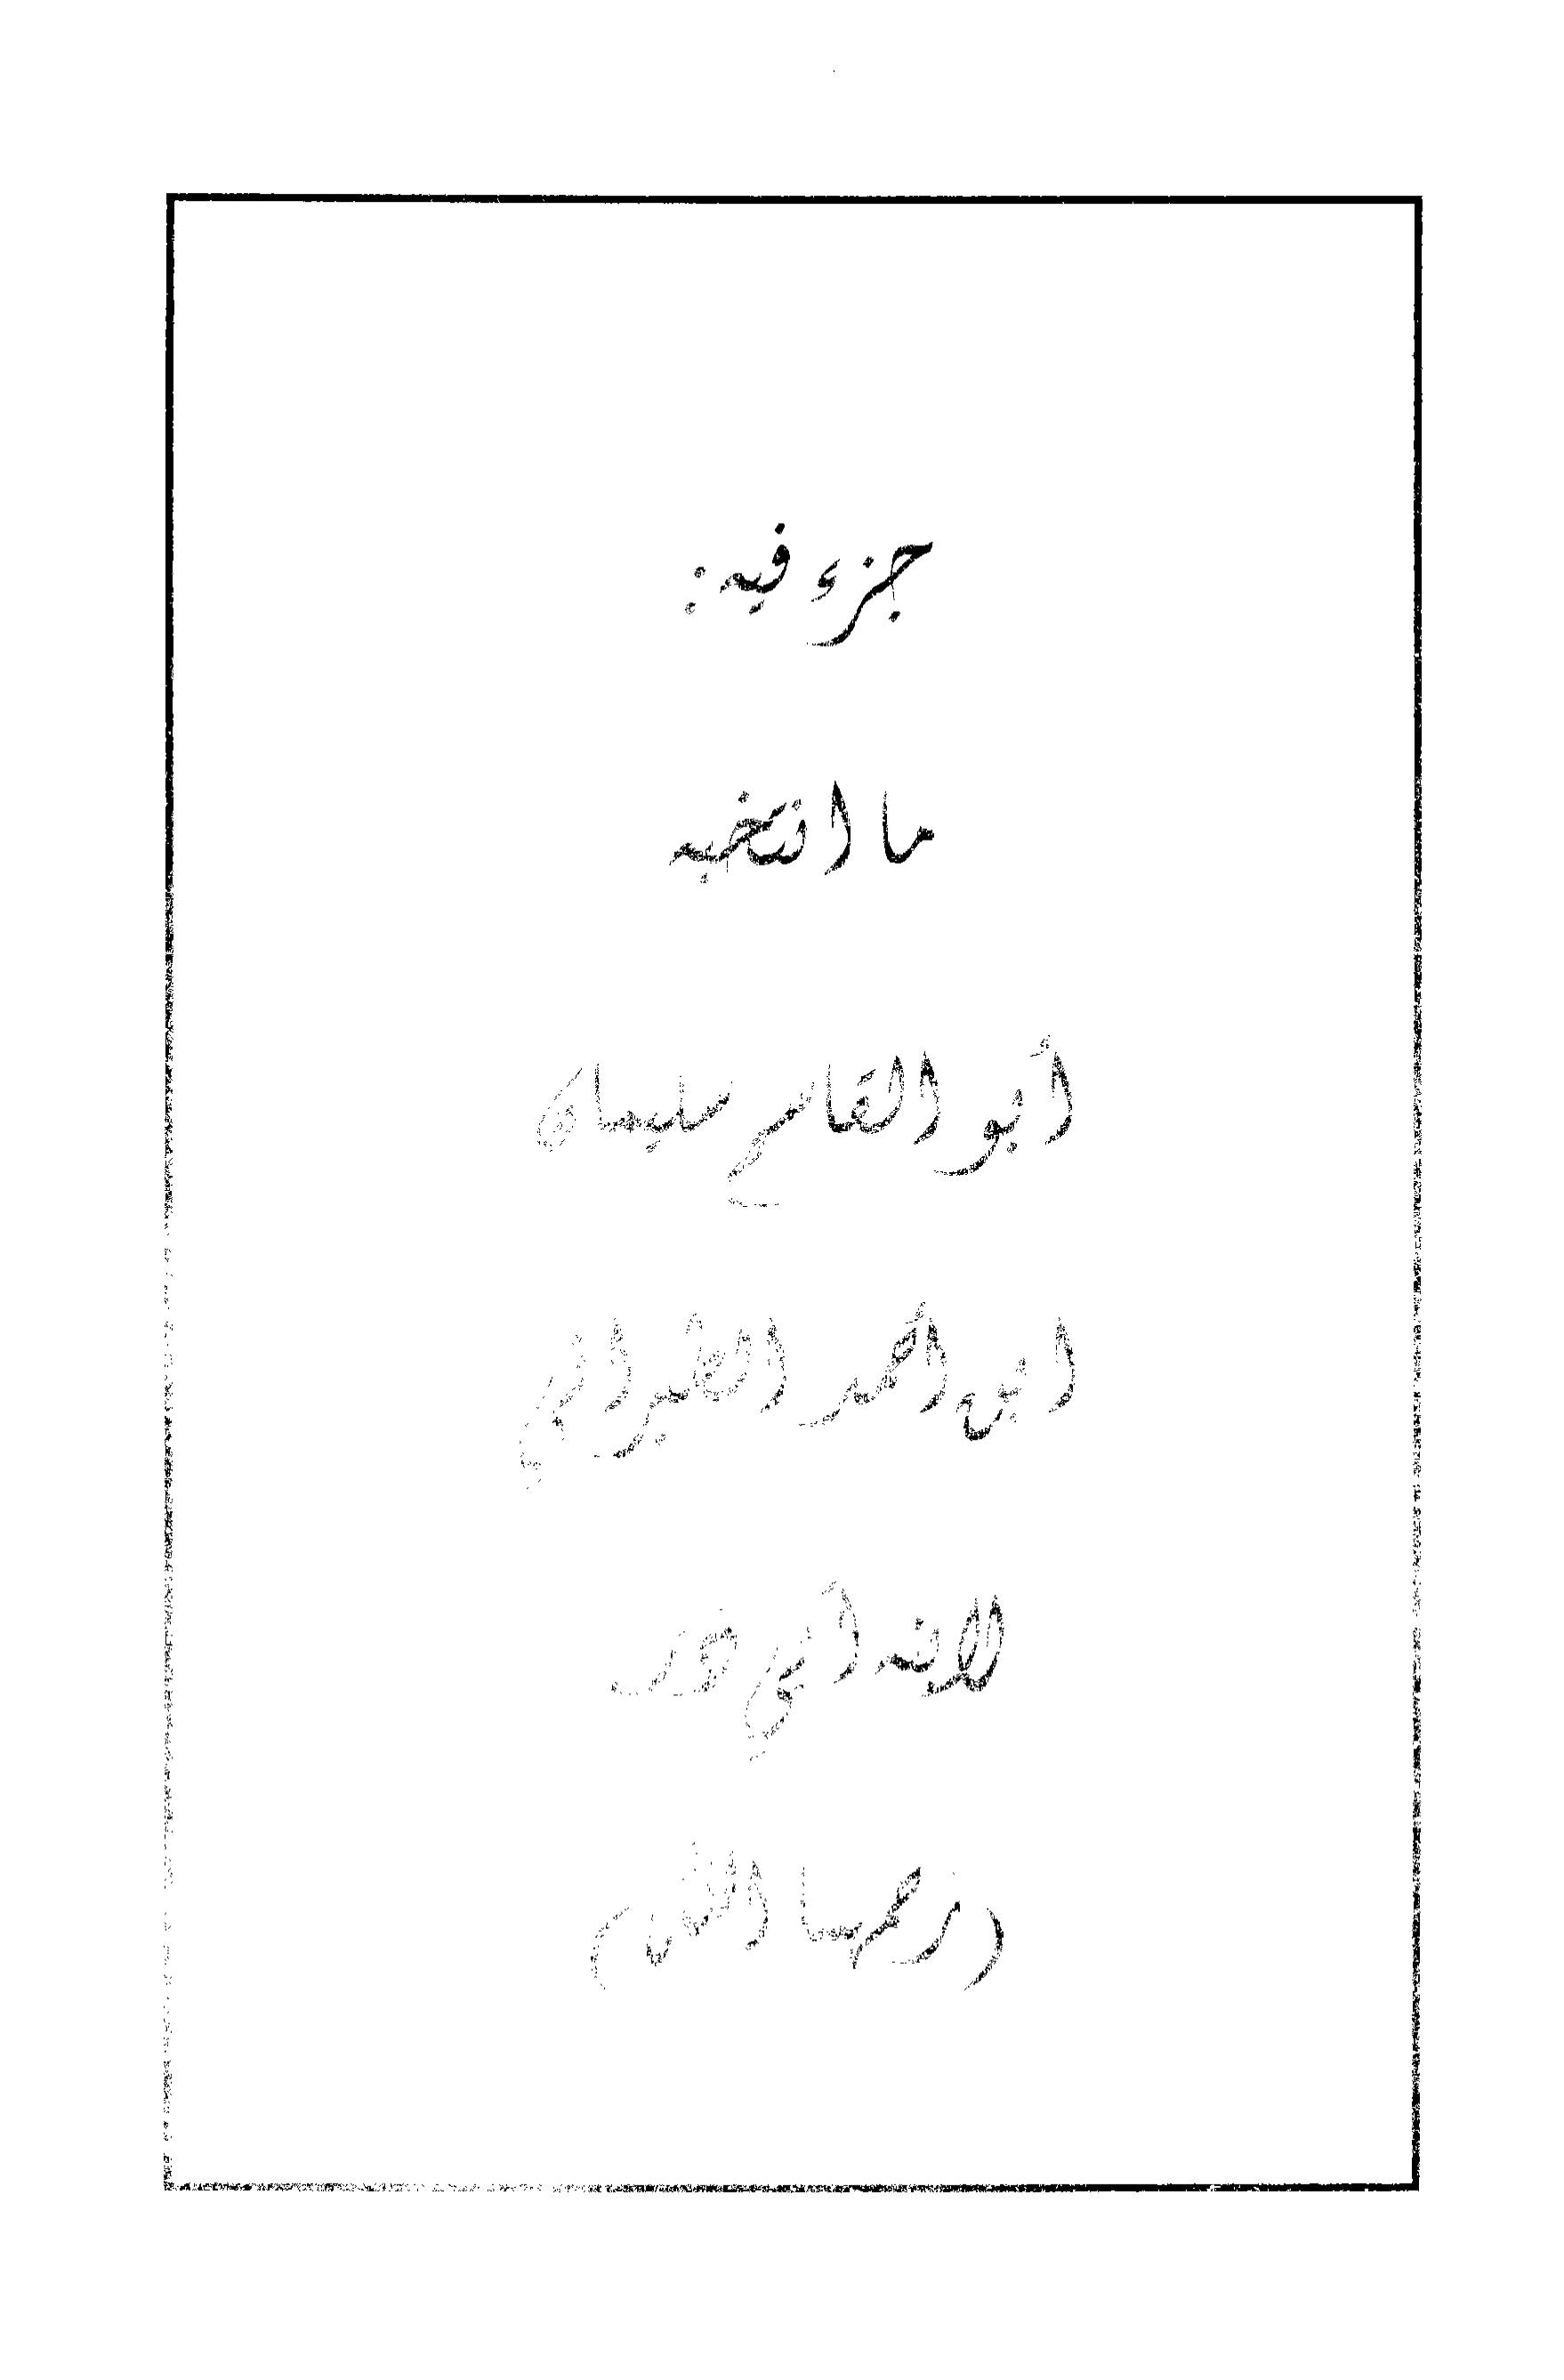 جزء فيه:
ما انتخبه
أبو القاسم سليمان
ابن أحمد الطبراني
لابنه أبي ذر
(رحمهما الله)